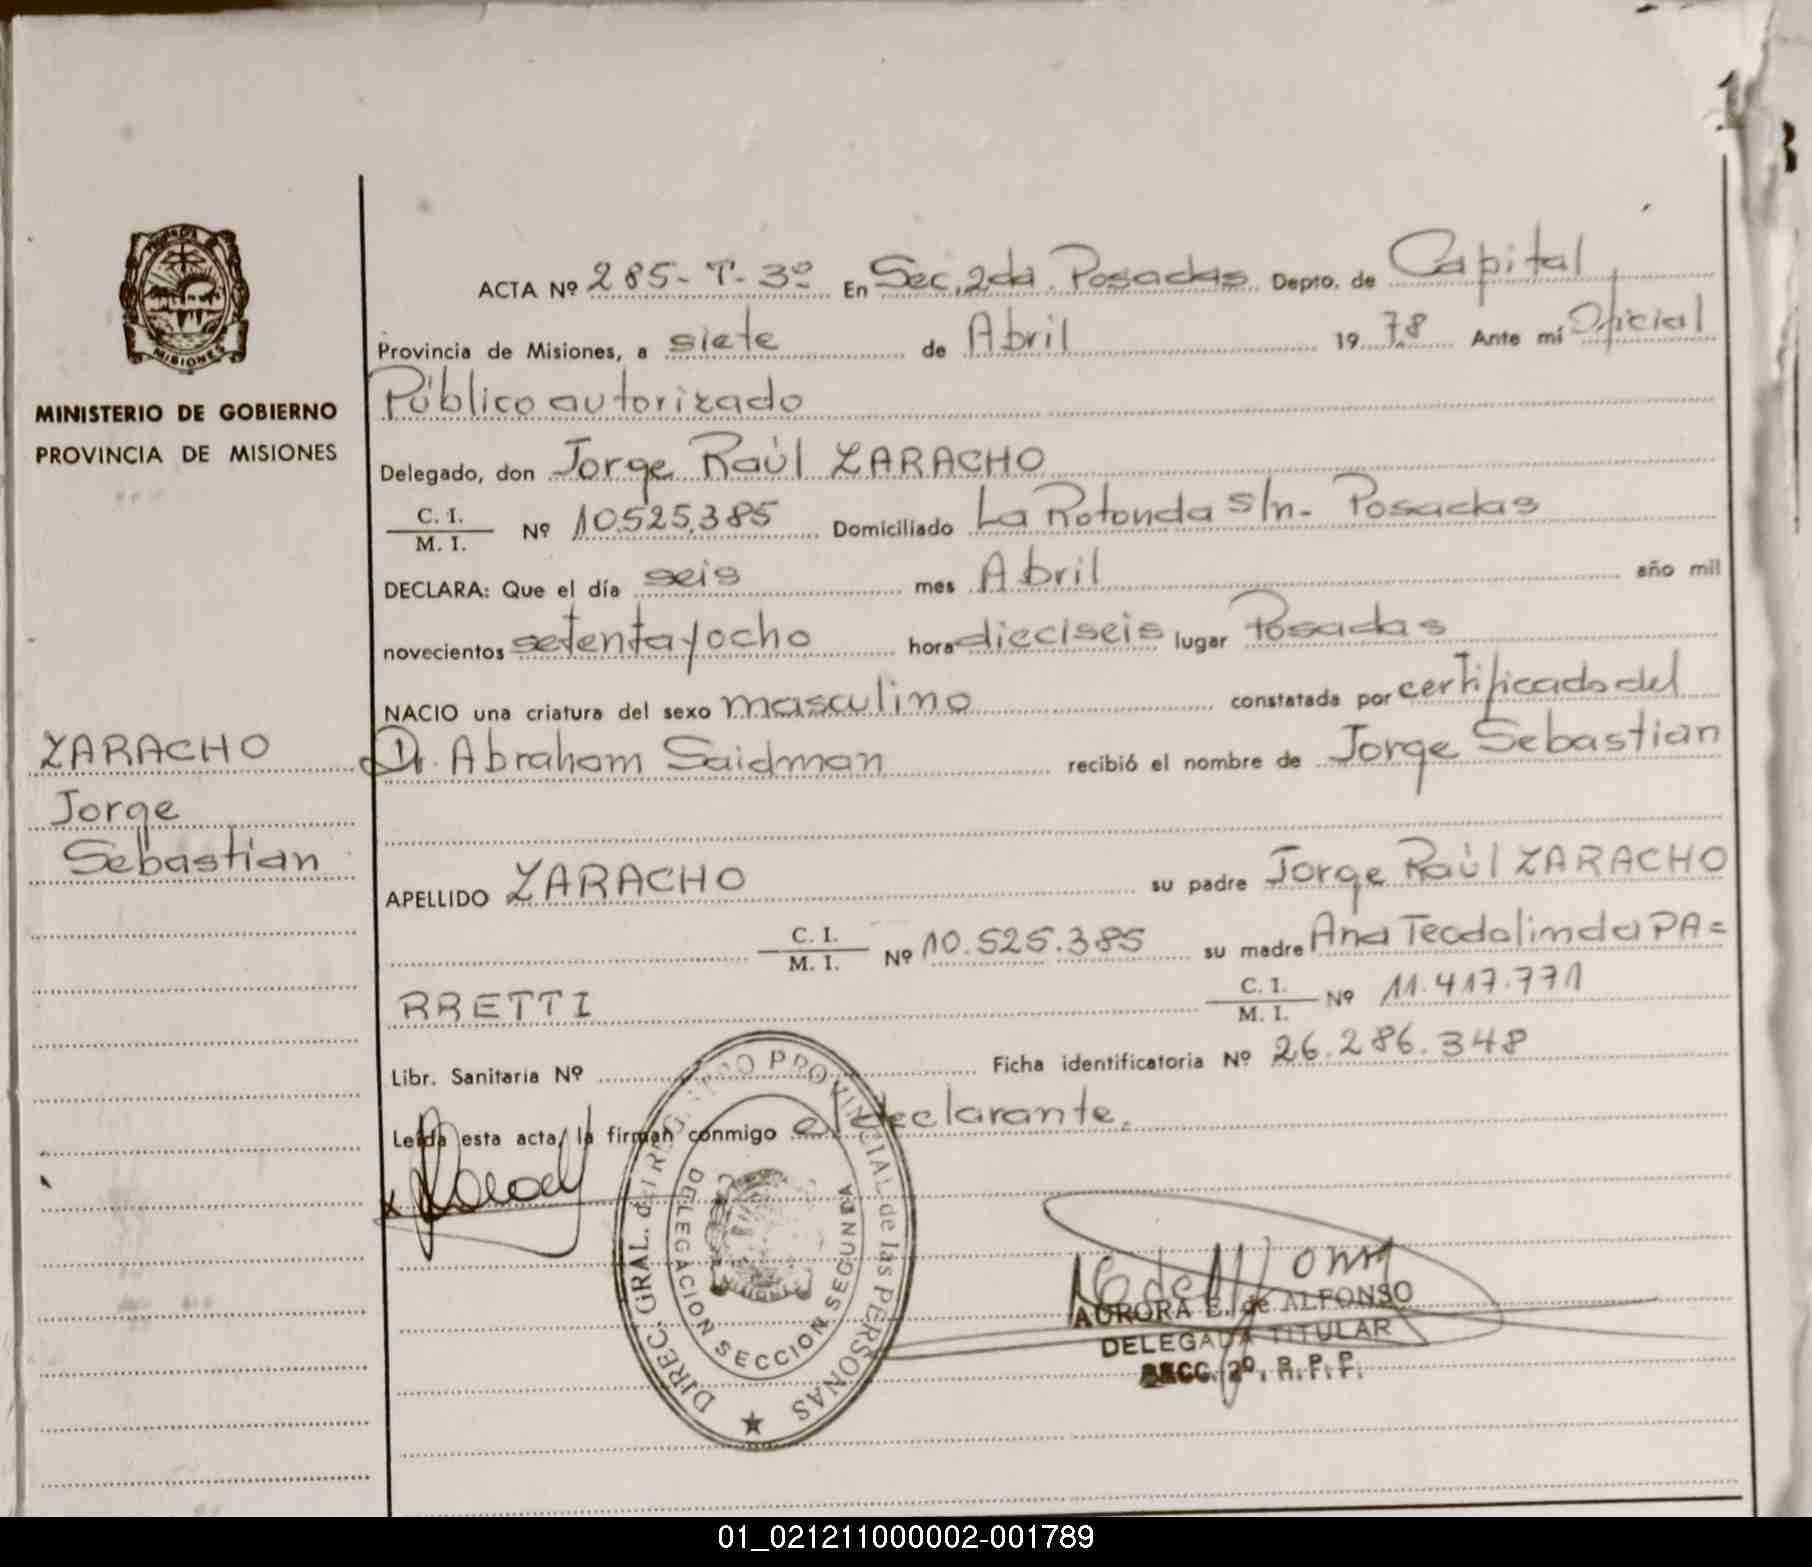 MISIONES
MINISTERIO DE GOBIERNO
PROVINCIA DE MISIONES
ZARACHO
Jorge
Sebastian
ACTA Nº 285-T-3º En Sec. 2da Posadas Depto. de Capital
Provincia de Misiones, a siete de Abril 1978 Ante mí Oficial
Público autorizado
Delegado, don Jorge Raúl ZARACHO
C. I. / M. I. Nº 10.525.385 Domiciliado La Rotonda s/n- Posadas
DECLARA: Que el día seis mes Abril año mil
novecientos setenta y ocho hora dieciseis lugar Posadas
NACIO una criatura del sexo masculino constatada por certificado del
Dr. Abraham Saidman recibió el nombre de Jorge Sebastian
APELLIDO ZARACHO su padre Jorge Raúl ZARACHO
C. I. / M. I. Nº 10.525.385 su madre Ana Teodolinda PA=
RRETTI C. I. / M. I. Nº 11.417.771
Libr. Sanitaria Nº Ficha identificatoria Nº 26.286.348
Leída esta acta, la firman conmigo el declarante.
DIREC. GRAL. del REGISTRO PROVINCIAL de las PERSONAS
DELEGACION SECCION SEGUNDA
AURORA E. de ALFONSO
DELEGADA TITULAR
SECC. 2º. R. P. P.
01_021211000002-001789